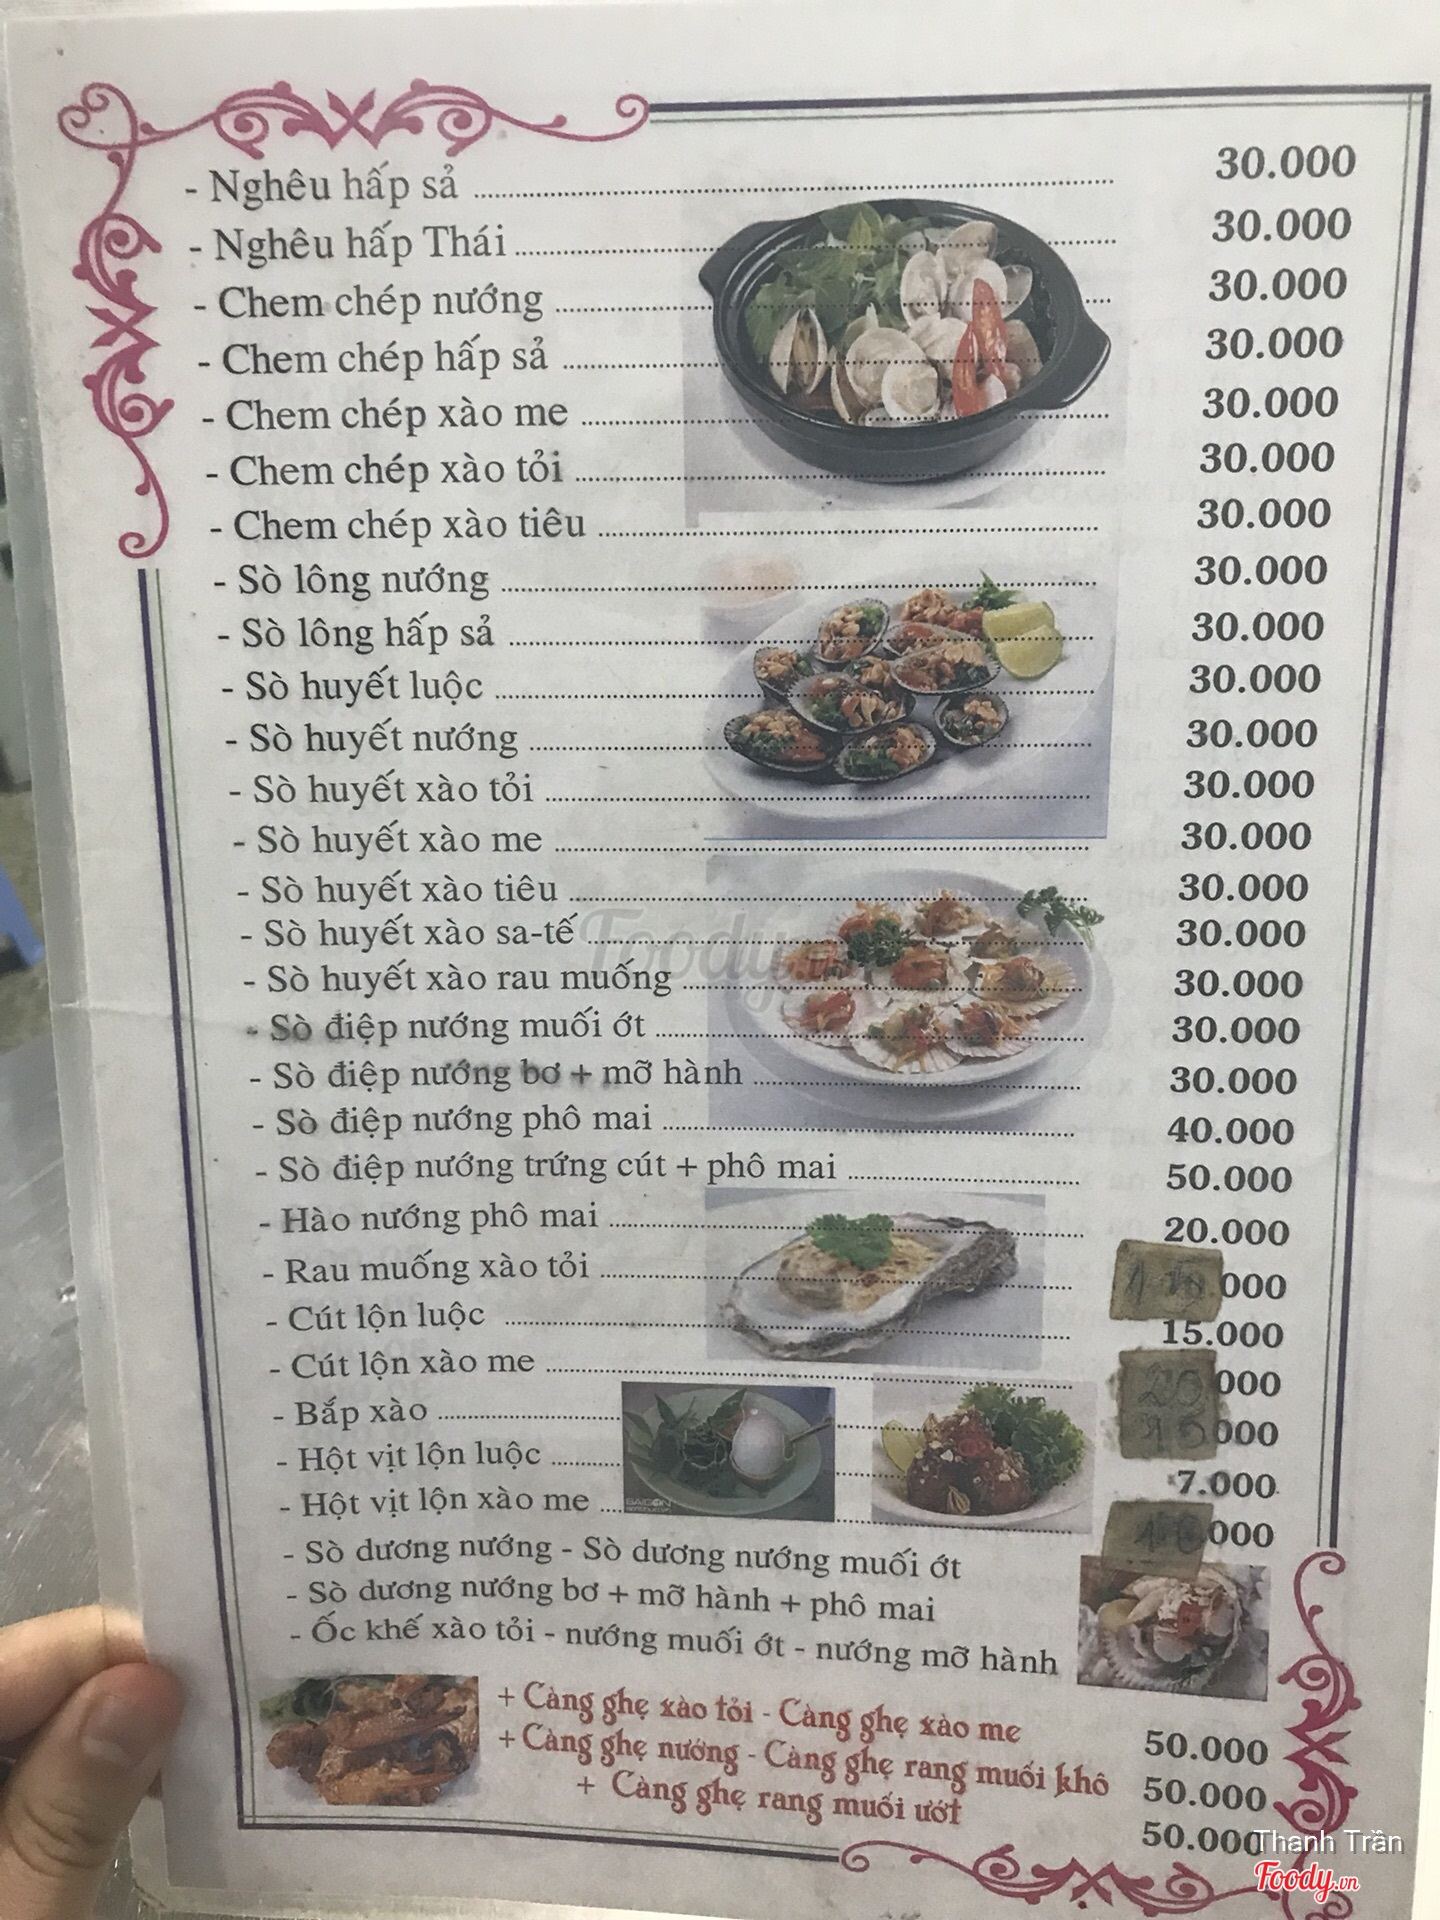 - Nghêu hấp sả ........ 30.000
- Nghêu hấp Thái ........ 30.000
- Chem chép nướng ........ 30.000
- Chem chép hấp sả ........ 30.000
- Chem chép xào me ........ 30.000
- Chem chép xào tỏi ........ 30.000
- Chem chép xào tiêu ........ 30.000
- Sò lông nướng ........ 30.000
- Sò lông hấp sả ........ 30.000
- Sò huyết luộc ........ 30.000
- Sò huyết nướng ........ 30.000
- Sò huyết xào tỏi ........ 30.000
- Sò huyết xào me ........ 30.000
- Sò huyết xào tiêu ........ 30.000
- Sò huyết xào sa-tế ........ 30.000
- Sò huyết xào rau muống ........ 30.000
- Sò điệp nướng muối ớt ........ 30.000
- Sò điệp nướng bơ + mỡ hành ........ 30.000
- Sò điệp nướng phô mai ........ 40.000
- Sò điệp nướng trứng cút + phô mai ........ 50.000
- Hào nướng phô mai ........ 20.000
- Rau muống xào tỏi ........ .000
- Cút lộn luộc ........ 15.000
- Cút lộn xào me ........ 000
- Bắp xào ........ 000
- Hột vịt lộn luộc ........ 7.000
- Hột vịt lộn xào me ........ .000
- Sò dương nướng - Sò dương nướng muối ớt
- Sò dương nướng bơ + mỡ hành + phô mai
- Ốc khế xào tỏi - nướng muối ớt - nướng mỡ hành
+ Càng ghẹ xào tỏi - Càng ghẹ xào me 50.000
+ Càng ghẹ nướng - Càng ghẹ rang muối khô 50.000
+ Càng ghẹ rang muối ướt 50.000
Thanh Trần
Foody.vn